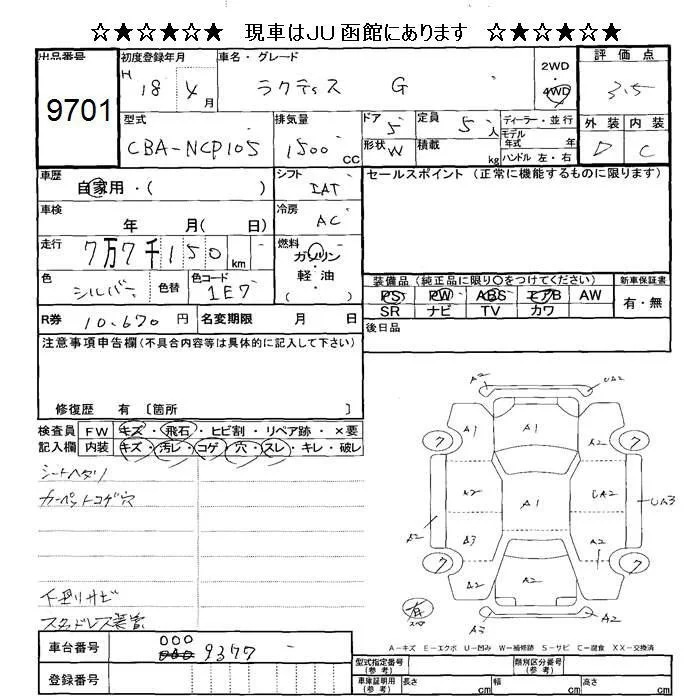 ☆★☆★☆★ 現車はJU函館にあります ☆★☆★☆★
出品番号
9701
初度登録年月
H 18 年 4 月
車名・グレード
ラクティス G
2WD
4WD
評価点
3.5
型式
CBA-NCP105
排気量
1500 cc
ドア
5
形状 W
定員
5 人
積載 kg
ディーラー・並行
モデル年式 年
ハンドル 左・右
外装 内装
D C
車歴
自家用・( )
シフト
IAT
車検
年 月( 日)
冷房
AC
走行
7万7千150km
燃料
ガソリン・軽油
( )
色
シルバー 色替
色コード
1E7
R券 10.670 円
名変期限 月 日
セールスポイント(正常に機能するものに限ります)
装備品(純正品に限り○をつけてください)
新車保証書
PS PW ABS エアB AW
有・無
SR ナビ TV カワ
後日品
注意事項申告欄(不具合内容等は具体的に記入して下さい)
修復歴 有〔箇所 〕
検査員 FW キズ・飛石・ヒビ割・リペア跡・×要
記入欄 内装 キズ・汚レ・コゲ・穴・スレ・キレ・破レ
シートヘタリ
カーペットコゲ穴
下廻りサビ
スタッドレス装着
A2 UA2
A1 A2
7 7
A2 A1 UA2
A1
A2 UA3
A3 A2
7 7
A2 A2
有
スペア
A3 A2
A-キズ E-エクボ U-凹み W-補修跡 S-サビ C-腐食 XX-交換済
車台番号
000
9377
登録番号
型式指定番号(参考)
類別区分番号(参考)
車庫証明用(参考) 長さ cm 幅 cm 高さ cm